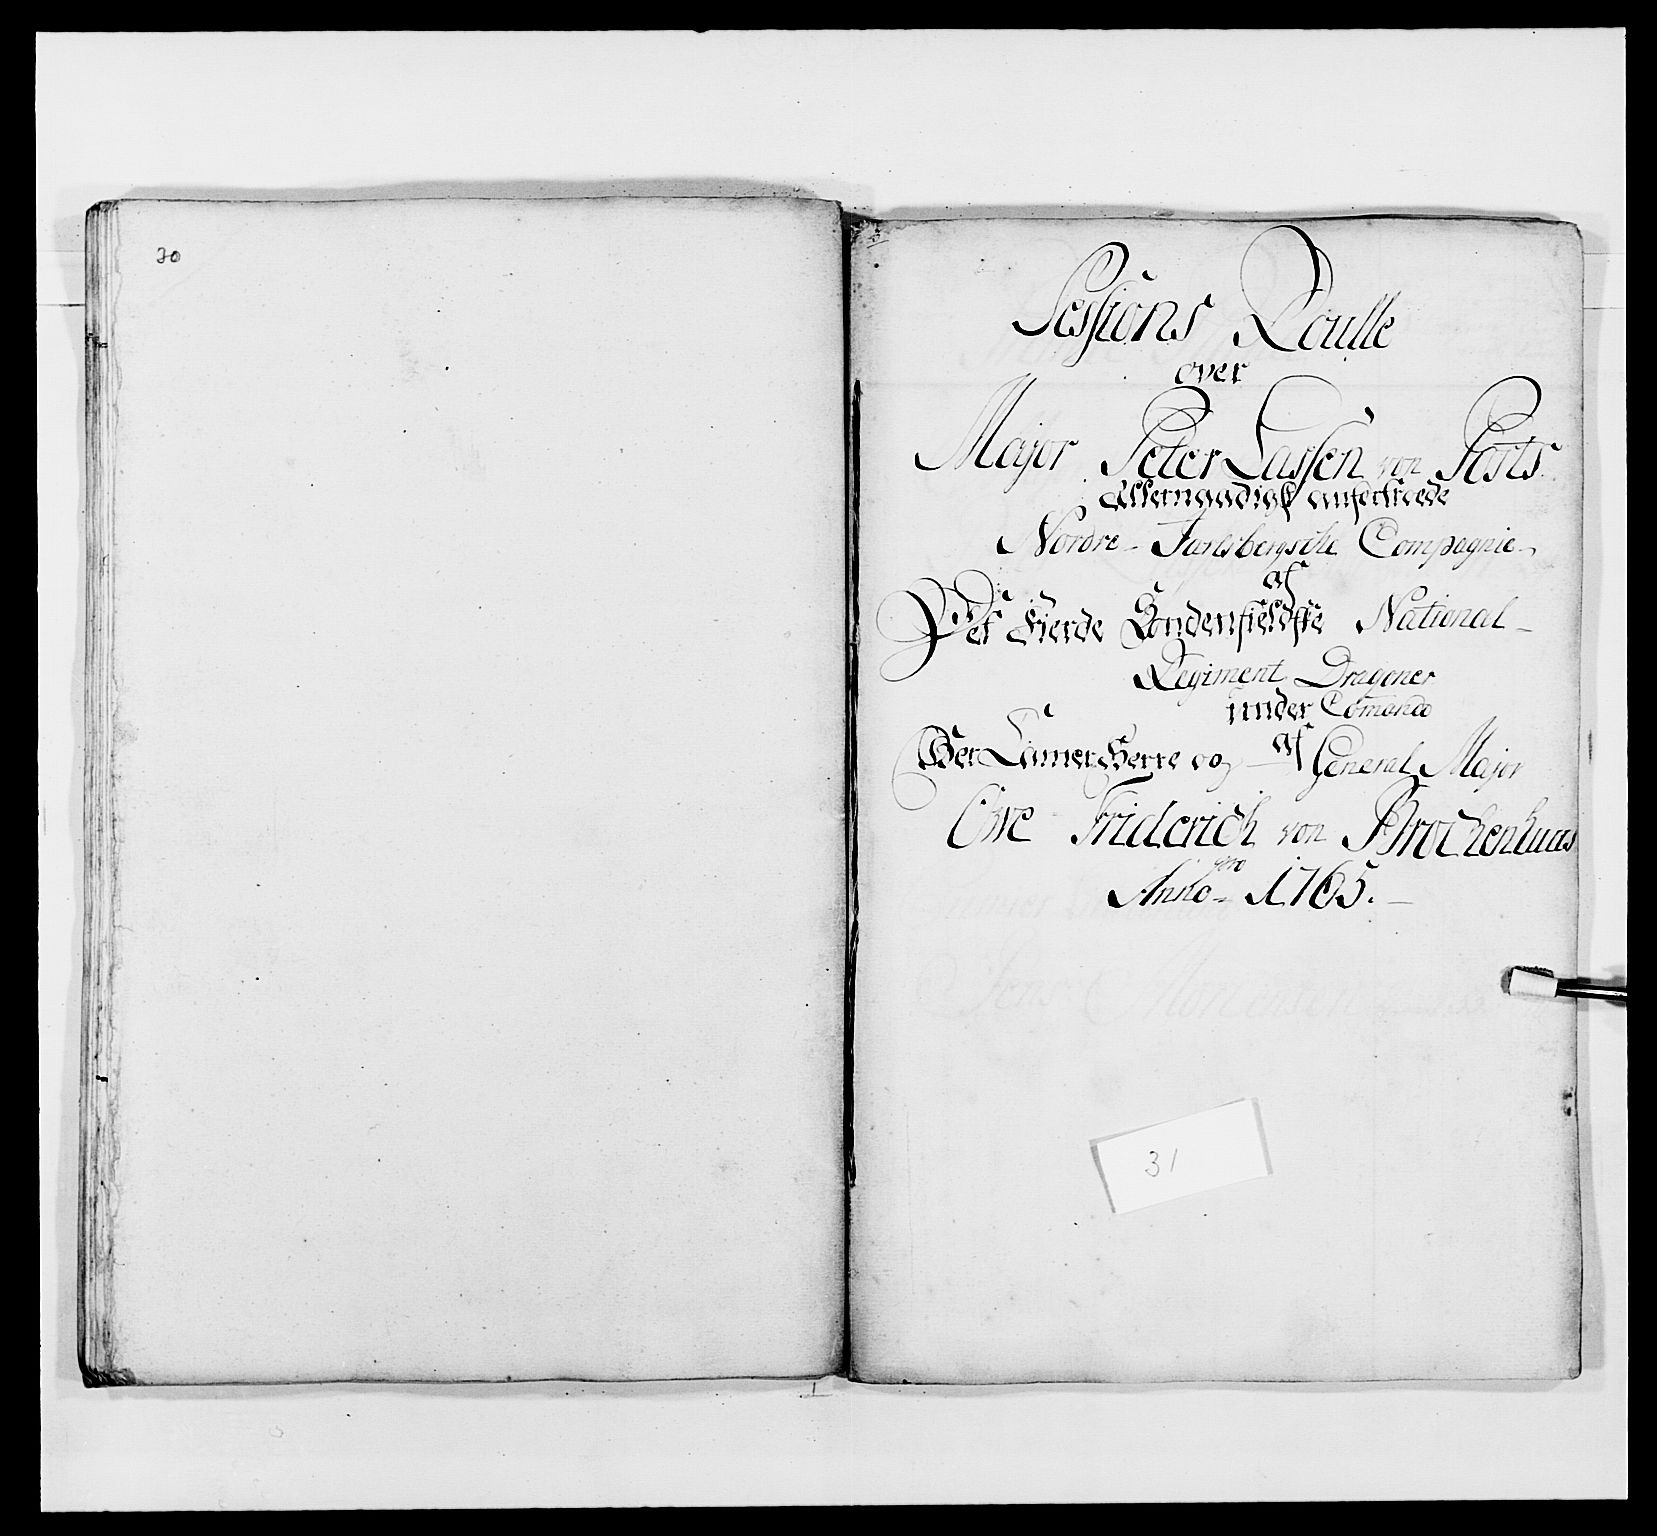 30
Sessions Roulle
over
Major Peter Lassen von Posts
Allernaadigst anfortroede
Nordre-Jarlsbergsche Compagnie
af
Det Fierde Søndenfieldske National-
Regiment Dragoner
under Comando
af
Her Camer Herre og General Major
Owe Friderich von Brochenhuus
pro
Anno 1765.
31